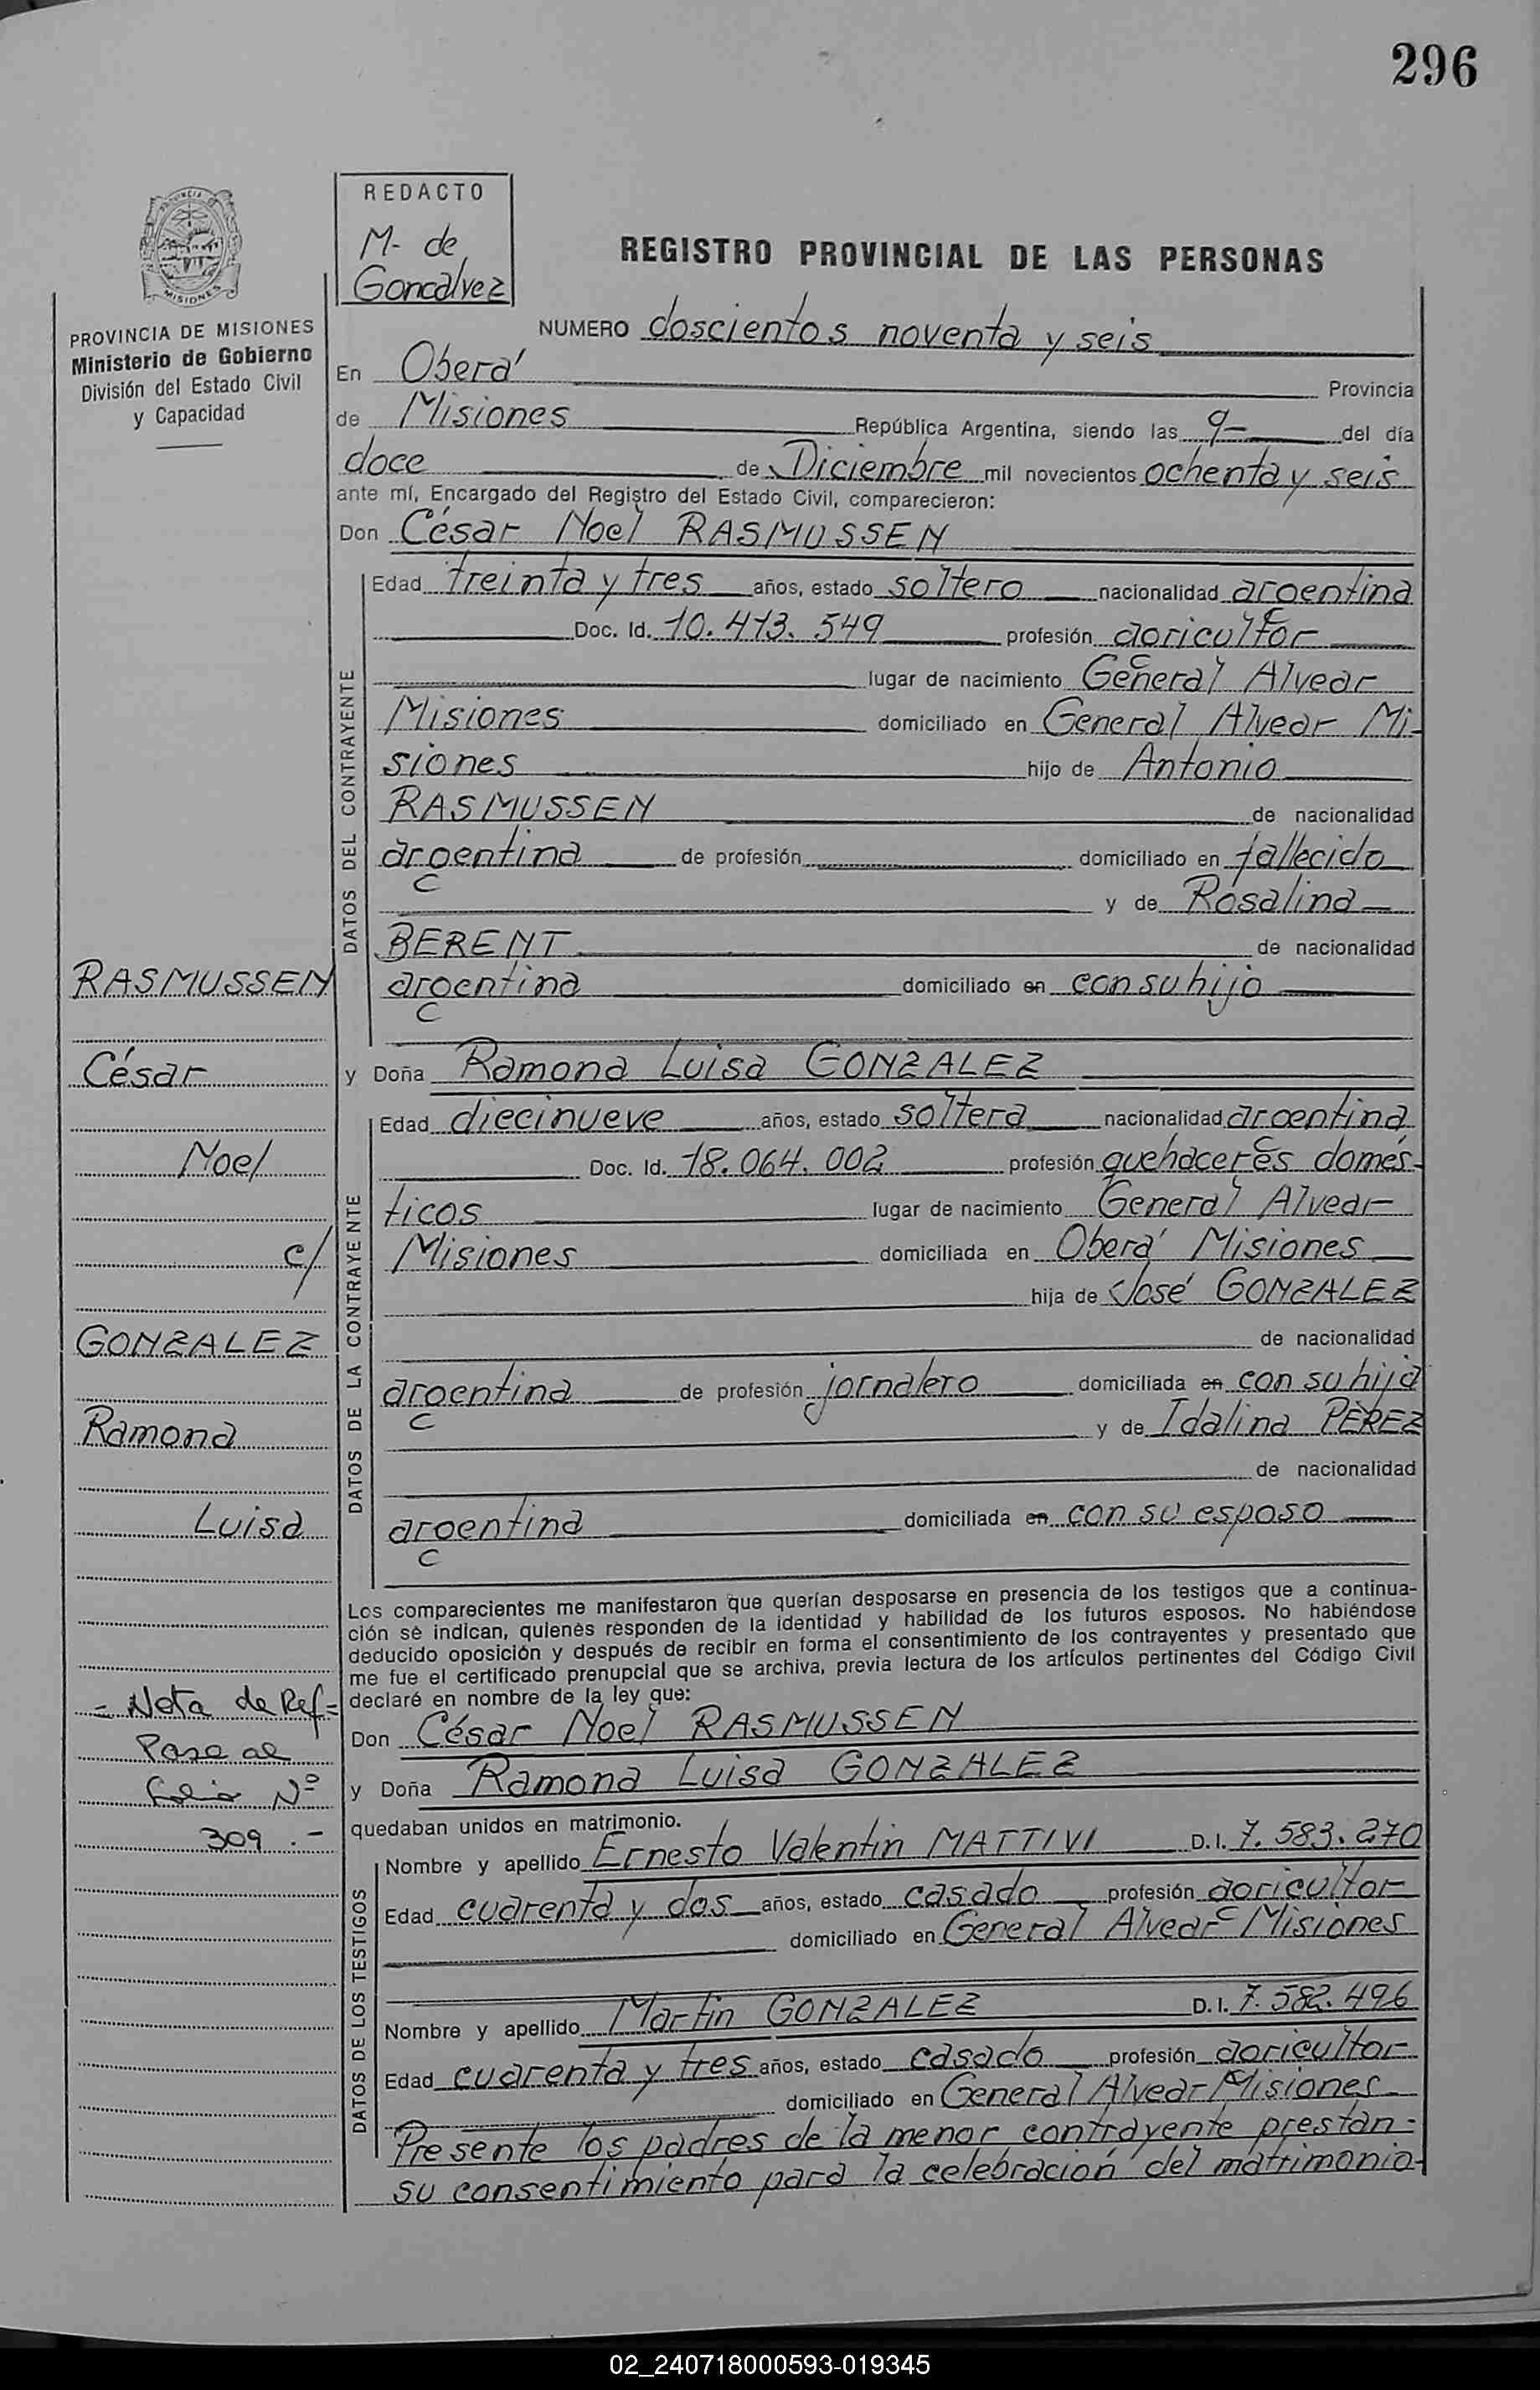 296
REDACTO
M. de
Goncalvez
MISIONES
REGISTRO PROVINCIAL DE LAS PERSONAS
PROVINCIA DE MISIONES
Ministerio de Gobierno
División del Estado Civil
y Capacidad
NUMERO doscientos noventa y seis
En Oberá Provincia
de Misiones República Argentina, siendo las 9- del día
doce de Diciembre mil novecientos ochenta y seis
ante mí, Encargado del Registro del Estado Civil, comparecieron:
Don César Noel RASMUSSEN
DATOS DEL CONTRAYENTE
Edad treinta y tres años, estado soltero nacionalidad argentina
Doc. Id. 10.413.549 profesión agricultor
lugar de nacimiento General Alvear
Misiones domiciliado en General Alvear Mi-
siones hijo de Antonio
RASMUSSEN de nacionalidad
argentina de profesión domiciliado en fallecido
y de Rosalina
BERENT de nacionalidad
argentina domiciliado en con su hijo
y Doña Ramona Luisa GONZALEZ
DATOS DE LA CONTRAYENTE
Edad diecinueve años, estado soltera nacionalidad argentina
Doc. Id. 18.064.002 profesión quehaceres domés-
ticos lugar de nacimiento General Alvear
Misiones domiciliada en Oberá Misiones
hija de José GONZALEZ
de nacionalidad
argentina de profesión jornalero domiciliada en con su hija
y de Idalina PEREZ
de nacionalidad
argentina domiciliada en con su esposo
RASMUSSEN
César
Noel
c/
GONZALEZ
Ramona
Luisa
= Nota de Ref=
Pasa al
folio Nº
309.-
Los comparecientes me manifestaron que querían desposarse en presencia de los testigos que a continua-
ción se indican, quienes responden de la identidad y habilidad de los futuros esposos. No habiéndose
deducido oposición y después de recibir en forma el consentimiento de los contrayentes y presentado que
me fue el certificado prenupcial que se archiva, previa lectura de los artículos pertinentes del Código Civil
declaré en nombre de la ley que:
Don César Noel RASMUSSEN
y Doña Ramona Luisa GONZALEZ
quedaban unidos en matrimonio.
DATOS DE LOS TESTIGOS
Nombre y apellido Ernesto Valentin MATTIVI D.I. 7.583.270
Edad cuarenta y dos años, estado casado profesión agricultor
domiciliado en General Alvear Misiones
Nombre y apellido Martin GONZALEZ D.I. 7.582.496
Edad cuarenta y tres años, estado casado profesión agricultor
domiciliado en General Alvear Misiones
Presente los padres de la menor contrayente prestan-
su consentimiento para la celebración del matrimonio-
02_240718000593-019345